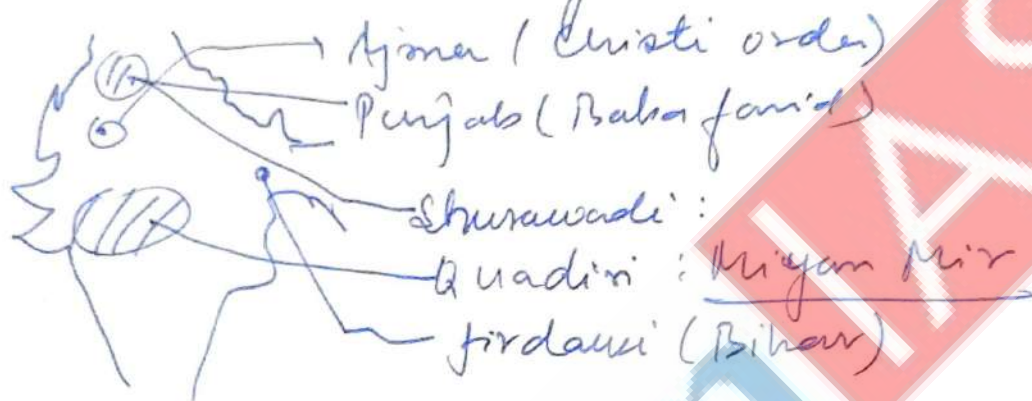 Ajmer ( Christi order)
Punjab ( Baba farid)
Shurawadi :
Quadiri : Miyan Mir
firdausi (Bihar)